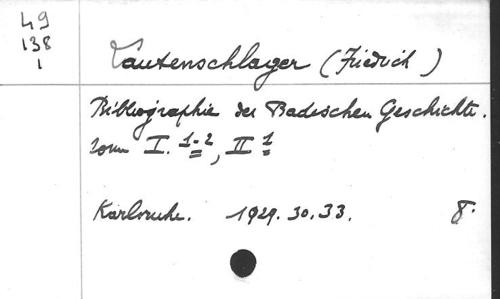 49
138
1
Lautenschlager (Friedrich)
Bibliographie der Badischen Geschichte.
Tom I. 1-2, II 1
Karlsruhe. 1929. 30. 33. 8.